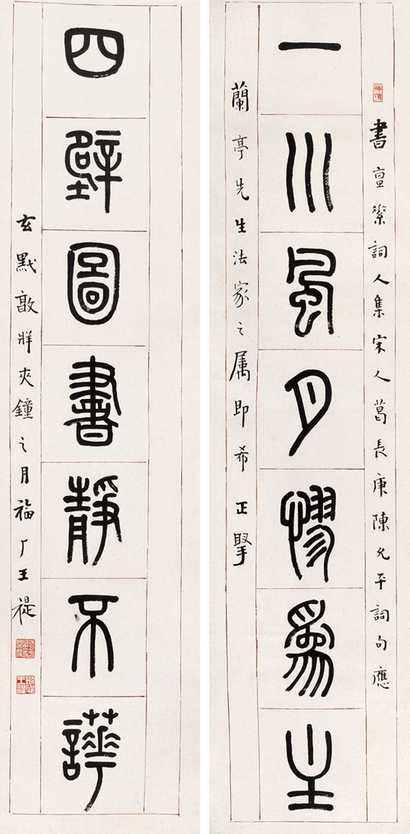 書亶素詞人集宋人葛長庚陳允平詞句應
一川風月憀爲主
蘭亭先生法家之属即希正掔
四壁圖書靜不譁
玄黓敦牂夾鐘之月福厂王禔